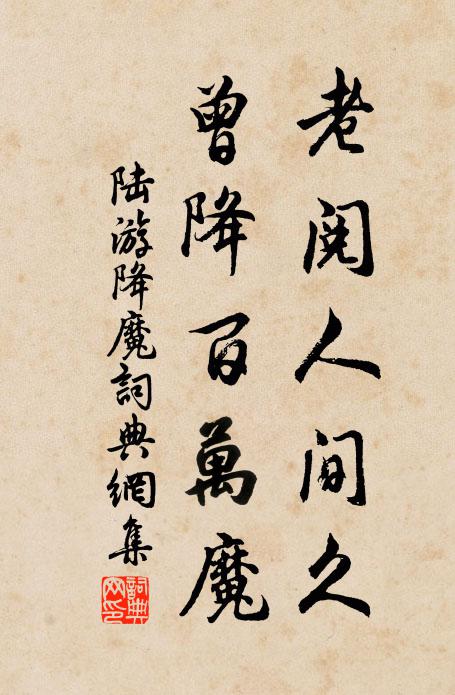 老閱人間久
曾降百萬魔
陸游降魔詞典網集
詞典网印